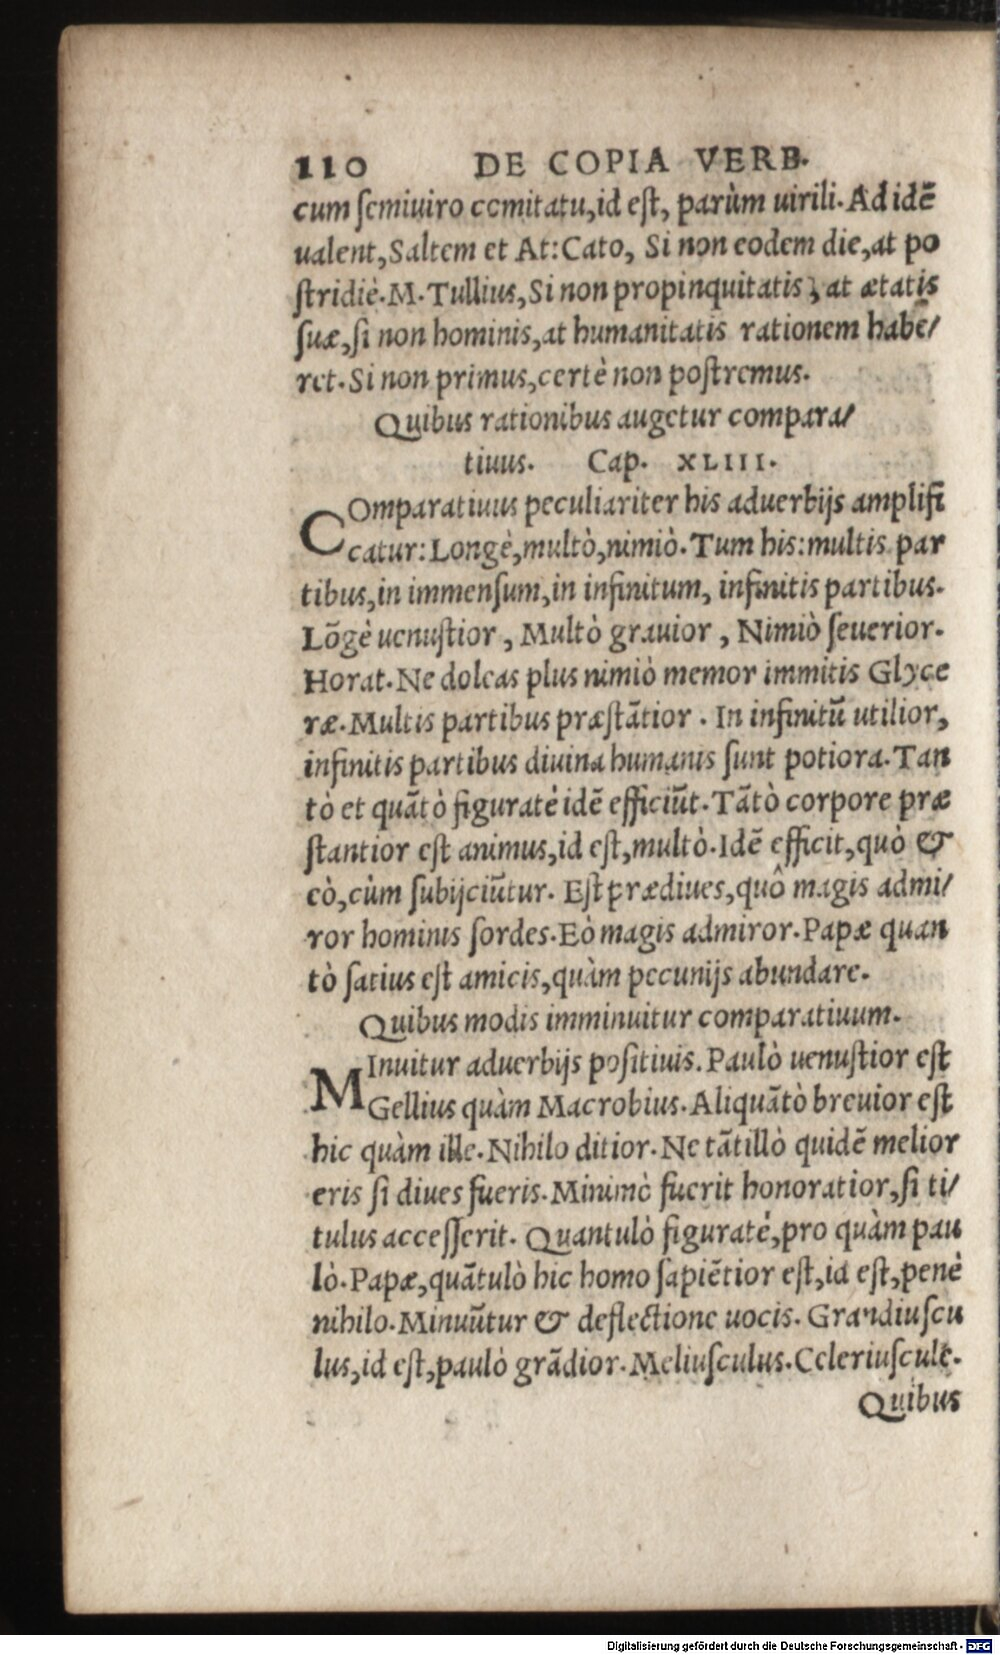 110 DE COPIA VERB.
cum ſemiuiro comitatu,id eſt, parùm uirili. Ad idē
ualent,Saltem et At:Cato, Si non eodem die,at po
ſtridiè.M.Tullius,Si non propinquitatis, at ætatis
ſuæ,ſi non hominis,at humanitatis rationem habe/
ret.Si non primus,certè non poſtremus.
Quibus rationibus augetur compara/
tiuus. Cap. XLIII.
COmparatiuus peculiariter his aduerbijs amplifi
catur:Longè,multò,nimiò.Tum his:multis par
tibus,in immenſum,in infinitum, infinitis partibus.
Lōgè uenuſtior, Multò grauior, Nimiò ſeuerior.
Horat.Ne doleas plus nimiò memor immitis Glyce
ræ.Multis partibus præſtātior. In infinitū utilior,
infinitis partibus diuina humanis ſunt potiora.Tan
tò et quātò figuratè idē efficiūt.Tātò corpore præ
ſtantior eſt animus,id eſt,multò.Idē efficit,quò &
eò,cùm ſubijciūtur. Eſt prædiues,quô magis admi/
ror hominis ſordes.Eò magis admiror.Papæ quan
tò ſatius eſt amicis,quàm pecunijs abundare.
Quibus modis imminuitur comparatiuum.
MInuitur aduerbijs poſitiuis.Paulò uenuſtior eſt
Gellius quàm Macrobius.Aliquātò breuior eſt
hic quàm ille.Nihilo ditior.Ne tātillò quidē melior
eris ſi diues fueris.Minimò fuerit honoratior,ſi ti/
tulus acceſſerit. Quantulò figuratè,pro quàm pau
lò.Papæ,quātulò hic homo ſapiētior eſt,id eſt,penè
nihilo.Minuūtur & deflectione uocis. Grandiuſcu
lus,id eſt,paulò grādior.Meliuſculus.Celeriuſculè.
Quibus
Digitalisierung gefördert durch die Deutsche Forschungsgemeinschaft - DFG